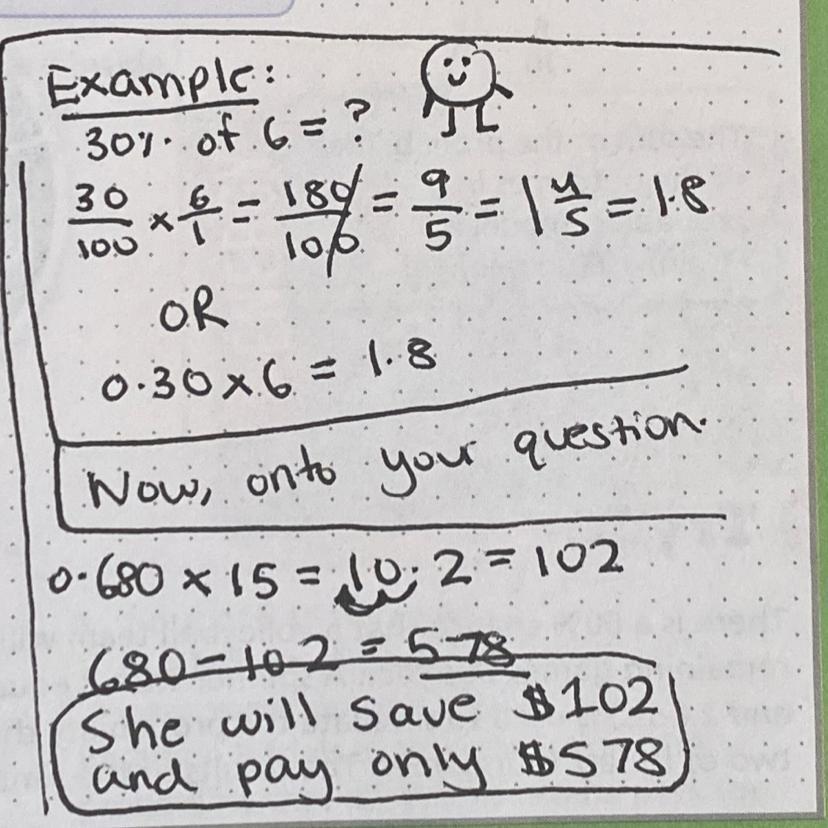 Example:
30% of 6 = ?
30/100 × 6/1 = 180/100 = 9/5 = 1 4/5 = 1.8
OR
0.30 × 6 = 1.8
Now, onto your question.
0.680 × 15 = 10.2 = 102
680 - 102 = 578
She will save $102
and pay only $578